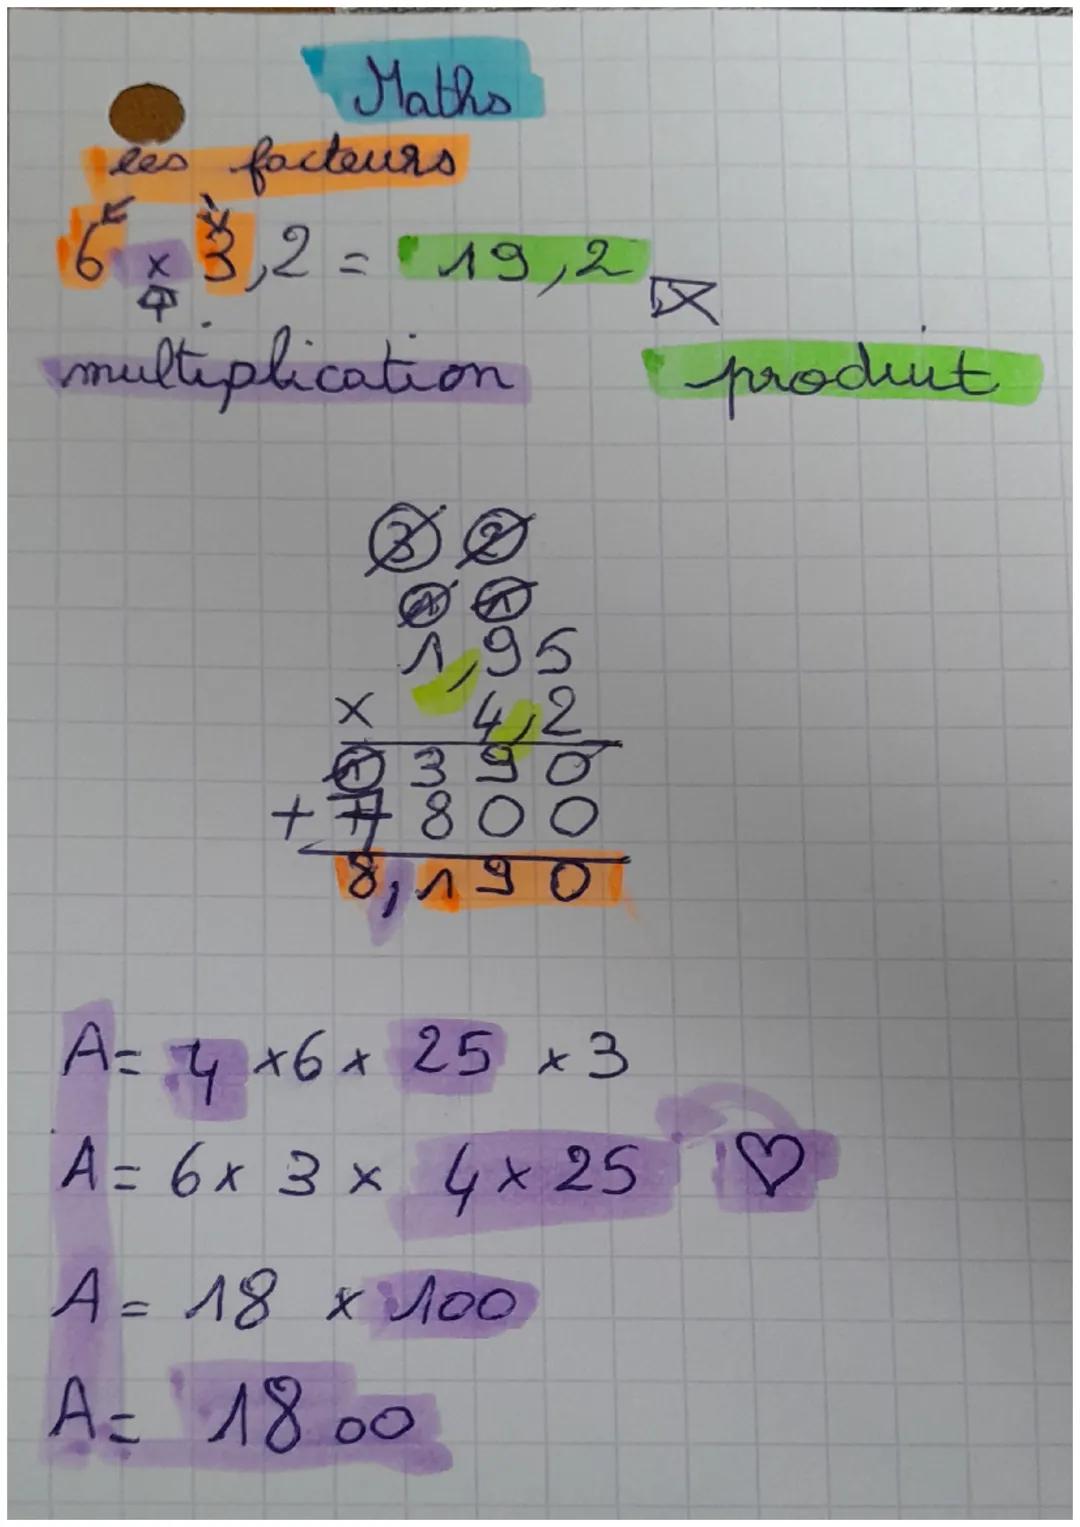 Maths
les facteurs
6 x 3,2 = 19,2
multiplication produit
3 2
1 1
1,95
x 4,2
1 3 9 0
+ 7 8 0 0
8,1 9 0
A= 4 x 6 x 25 x 3
A= 6 x 3 x 4 x 25 ♡
A= 18 x 100
A= 1800